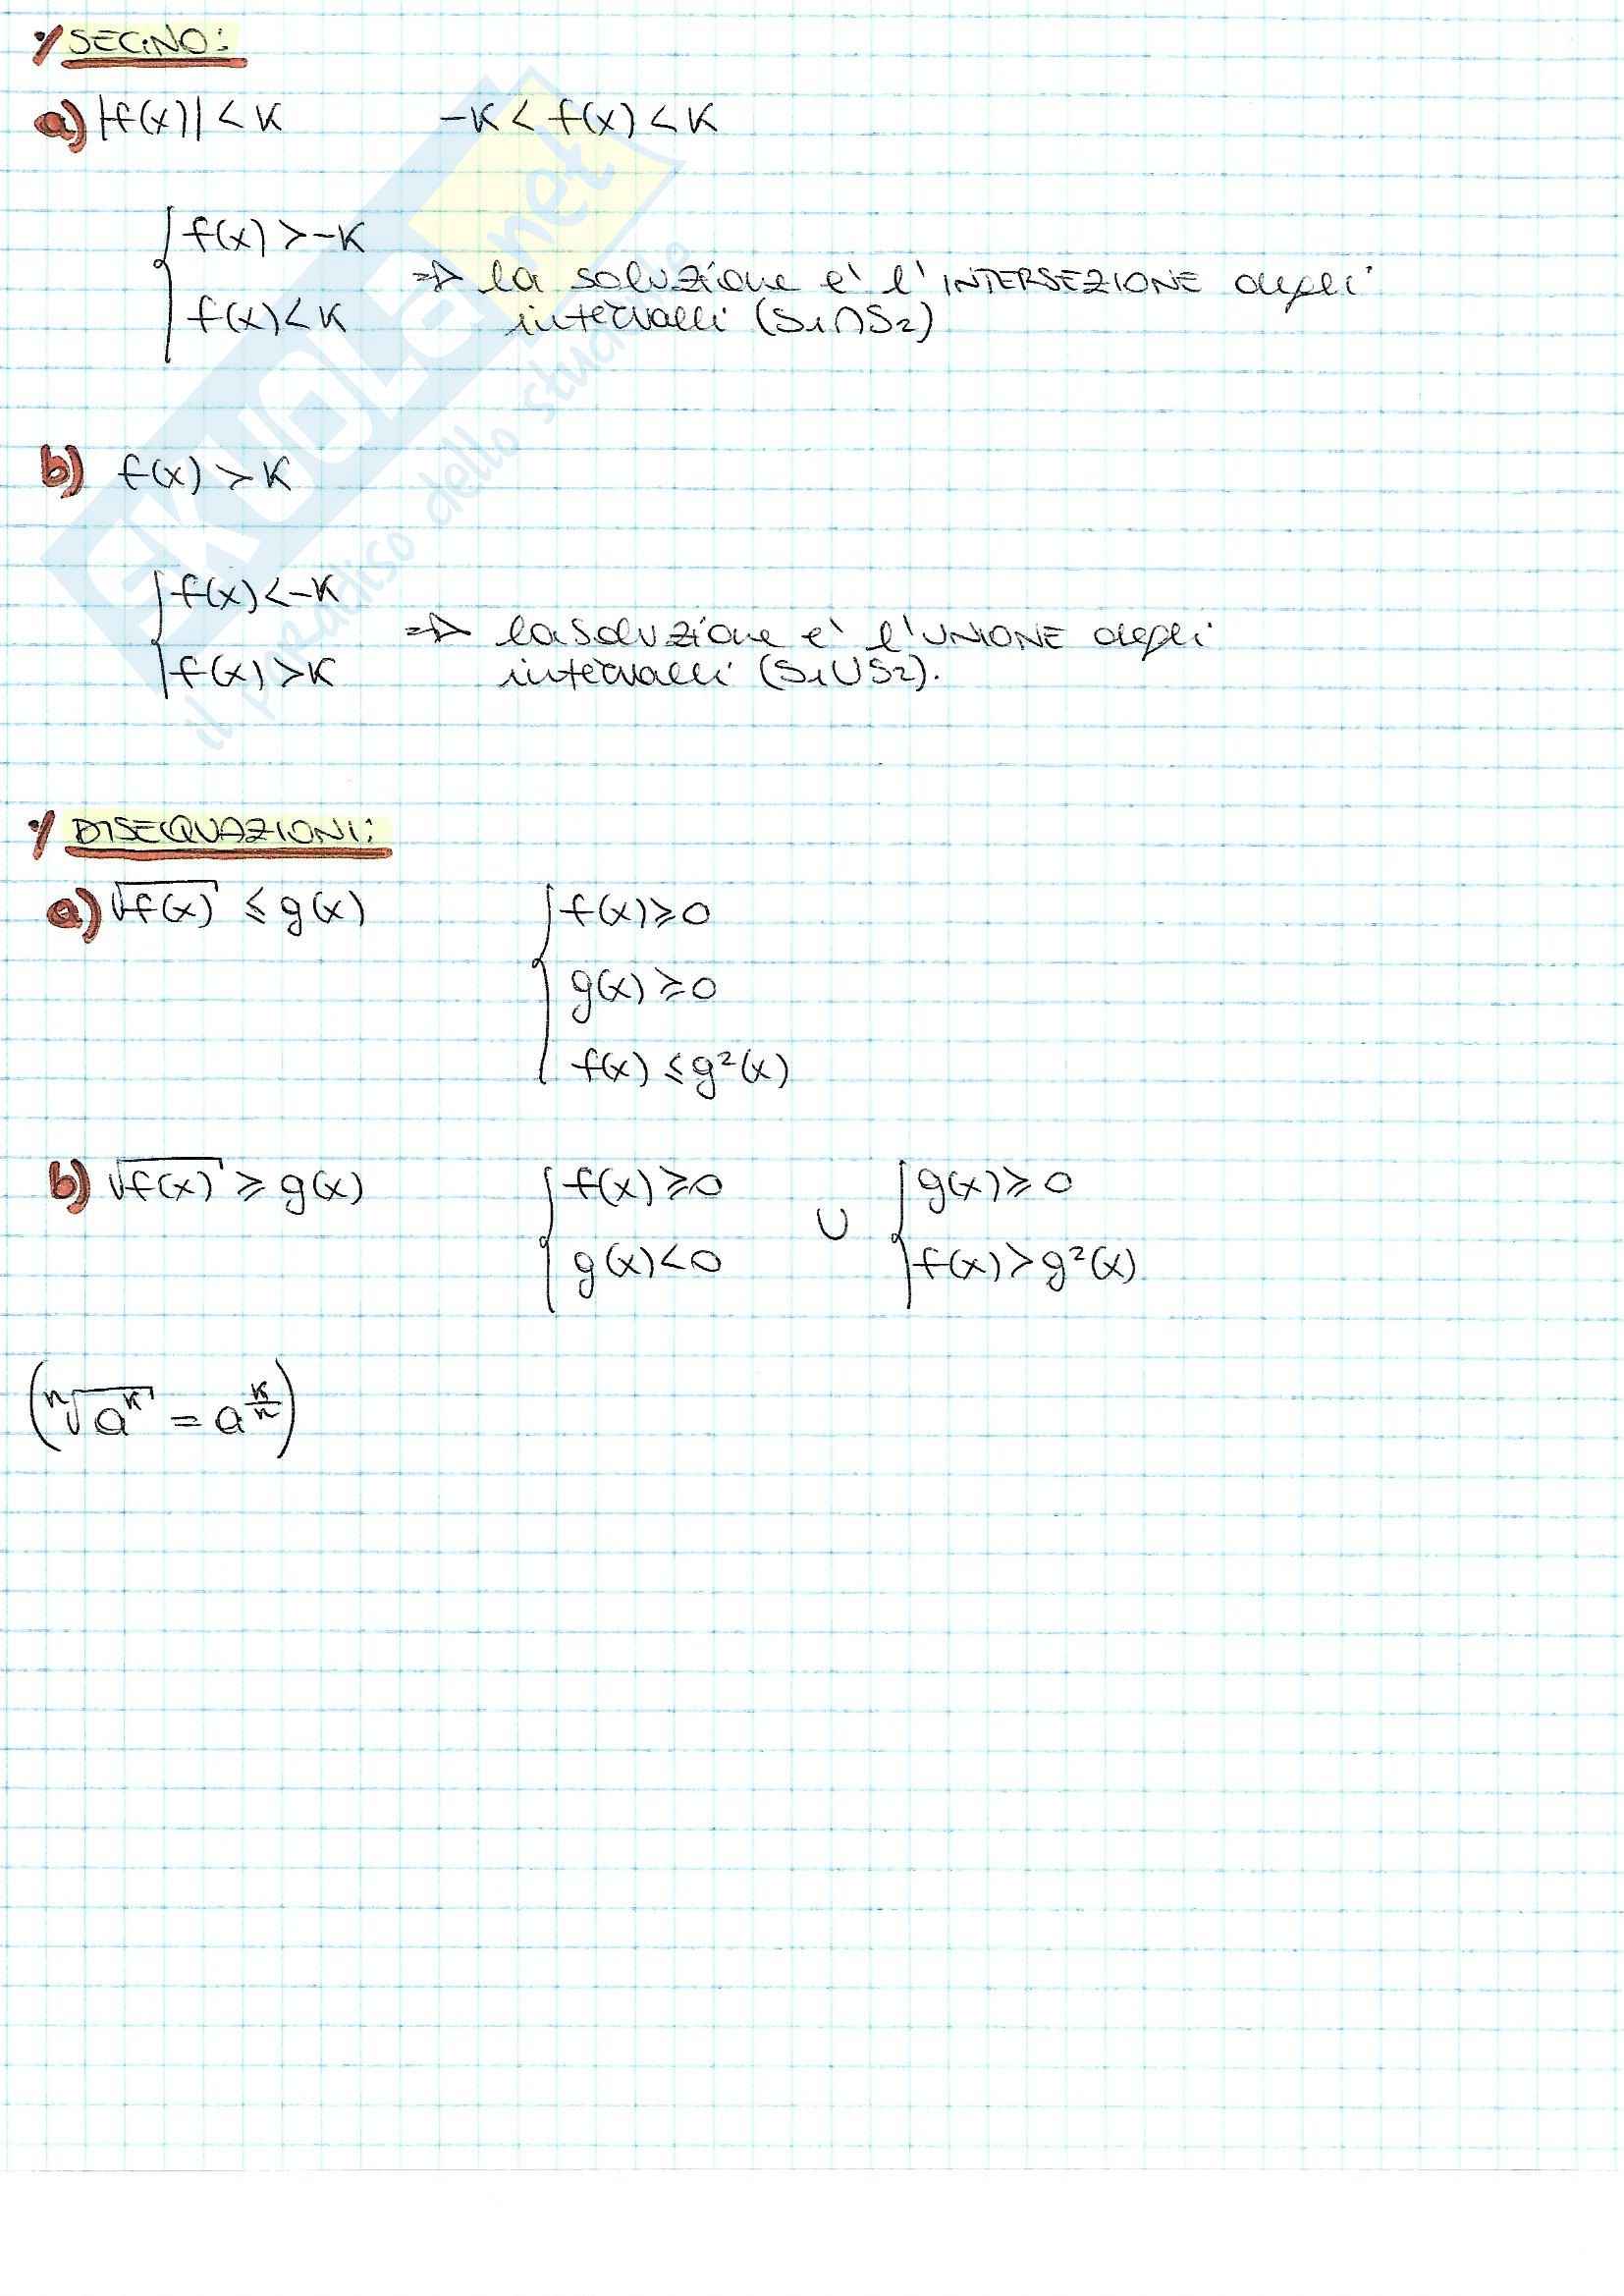 •/ SEGNO:
a) |f(x)| < K -K < f(x) < K
{ f(x) > -K
f(x) < K
=> la soluzione e' l'INTERSEZIONE degli
intervalli (S1∩S2)
b) f(x) > K
{ f(x) < -K
f(x) > K
=> la soluzione e' l'UNIONE degli
intervalli (S1∪S2).
•/ DISEQUAZIONI:
a) √f(x) ≤ g(x) { f(x) ≥ 0
g(x) ≥ 0
f(x) ≤ g²(x)
b) √f(x) ≥ g(x) { f(x) ≥ 0 ∪ { g(x) ≥ 0
g(x) < 0 f(x) > g²(x)
(ⁿ√a^K = a^(K/n))
SKUOLA.net
il paradiso dello studente